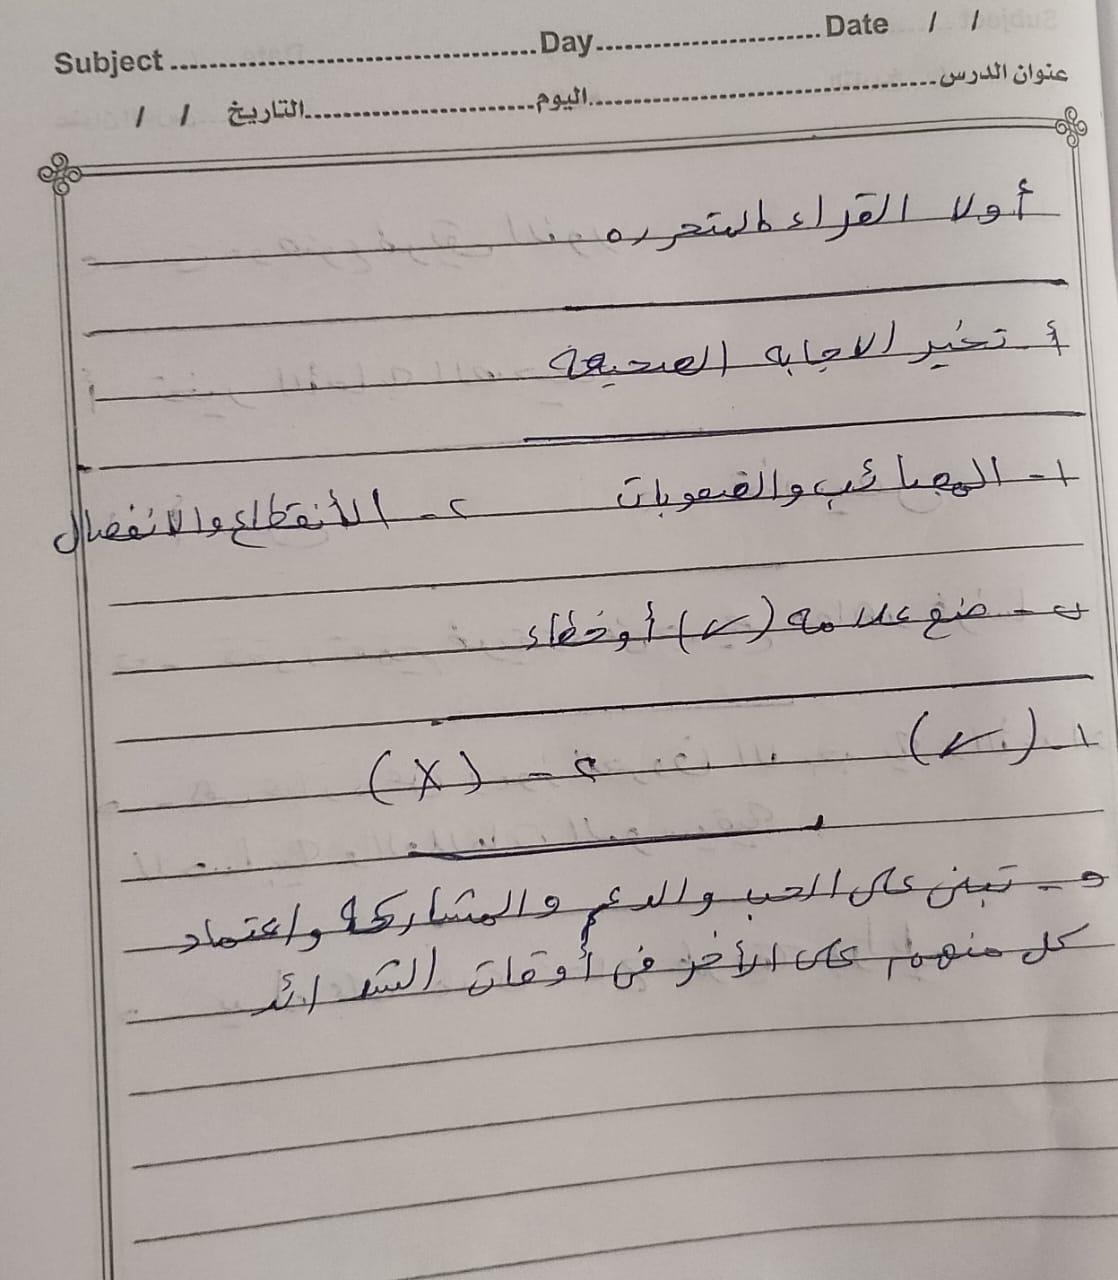 Subject ........ Day ........ Date / /
عنوان الدرس ........ اليوم ........ التاريخ / /
أولا القراءه المتحرره
أ تخير الاجابه الصحيحة
١- المصائب والصعوبات ٢- الأنقطاع والانفصال
ب- ضع علامه (✓) أو خطاء
١- (✓) ٢- (X)
ج- تبنى على الحب والدعم والمشاركة واعتماد
كل منهم على الأخر فى أوقات الشدائد